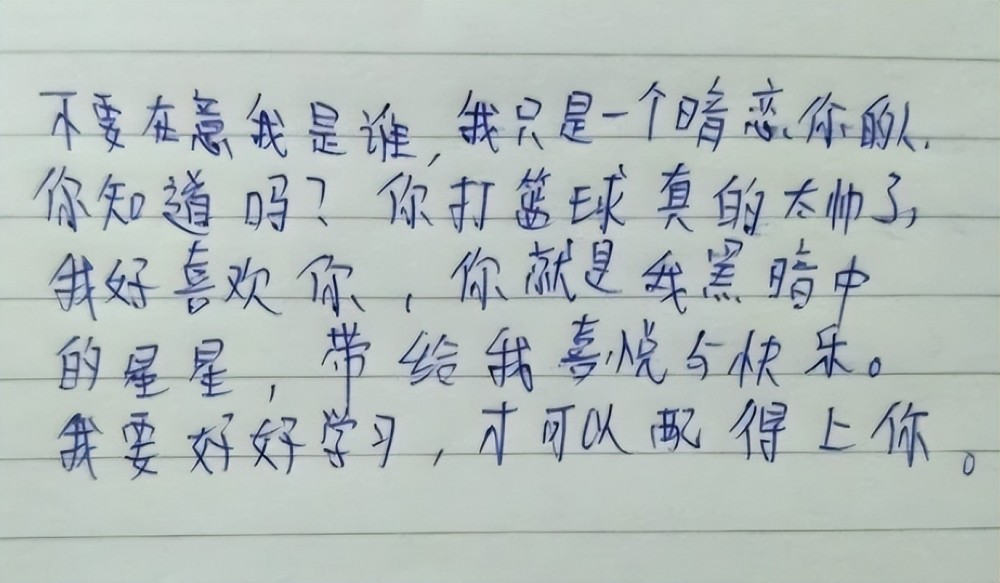 不要在意我是谁,我只是一个暗恋你的人.
你知道吗?你打篮球真的太帅了,
我好喜欢你,你就是我黑暗中
的星星,带给我喜悦与快乐。
我要好好学习,才可以配得上你。